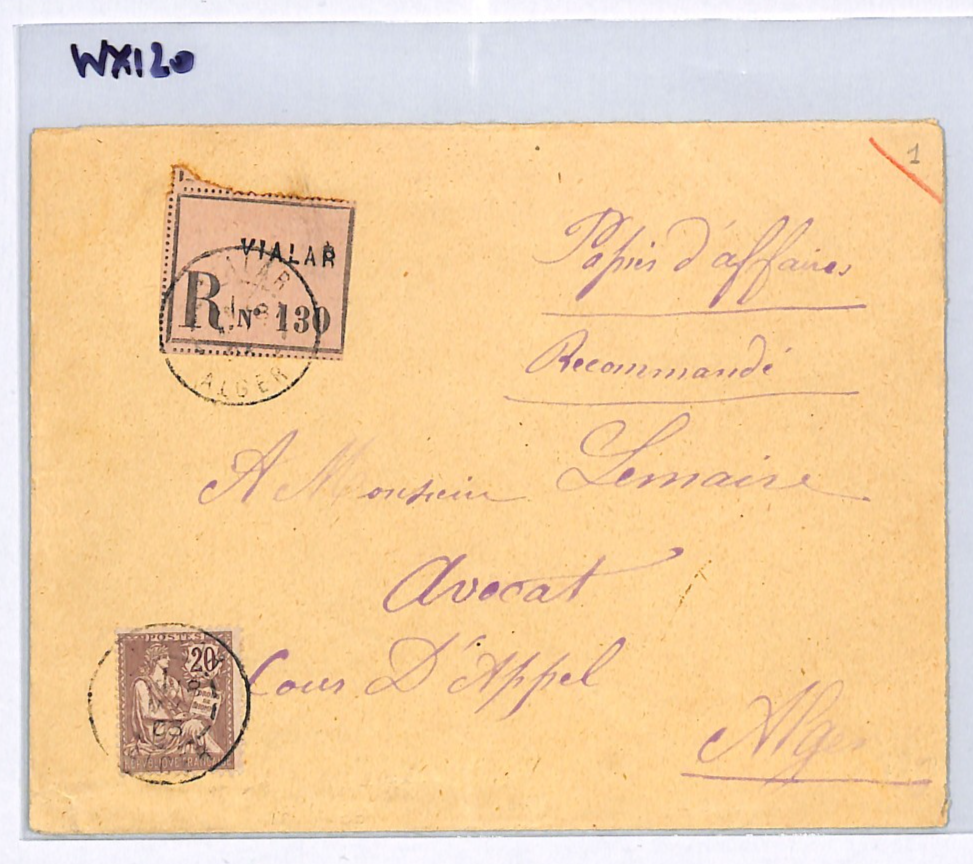 WX120
1
VIALAR
R N° 130
VIALAR
ALGER
Papiers d'affaires
Recommandé
A Monsieur Lemaire
Avocat
Cour D'Appel
Alger
POSTES
20
REPUBLIQUE FRANÇAISE